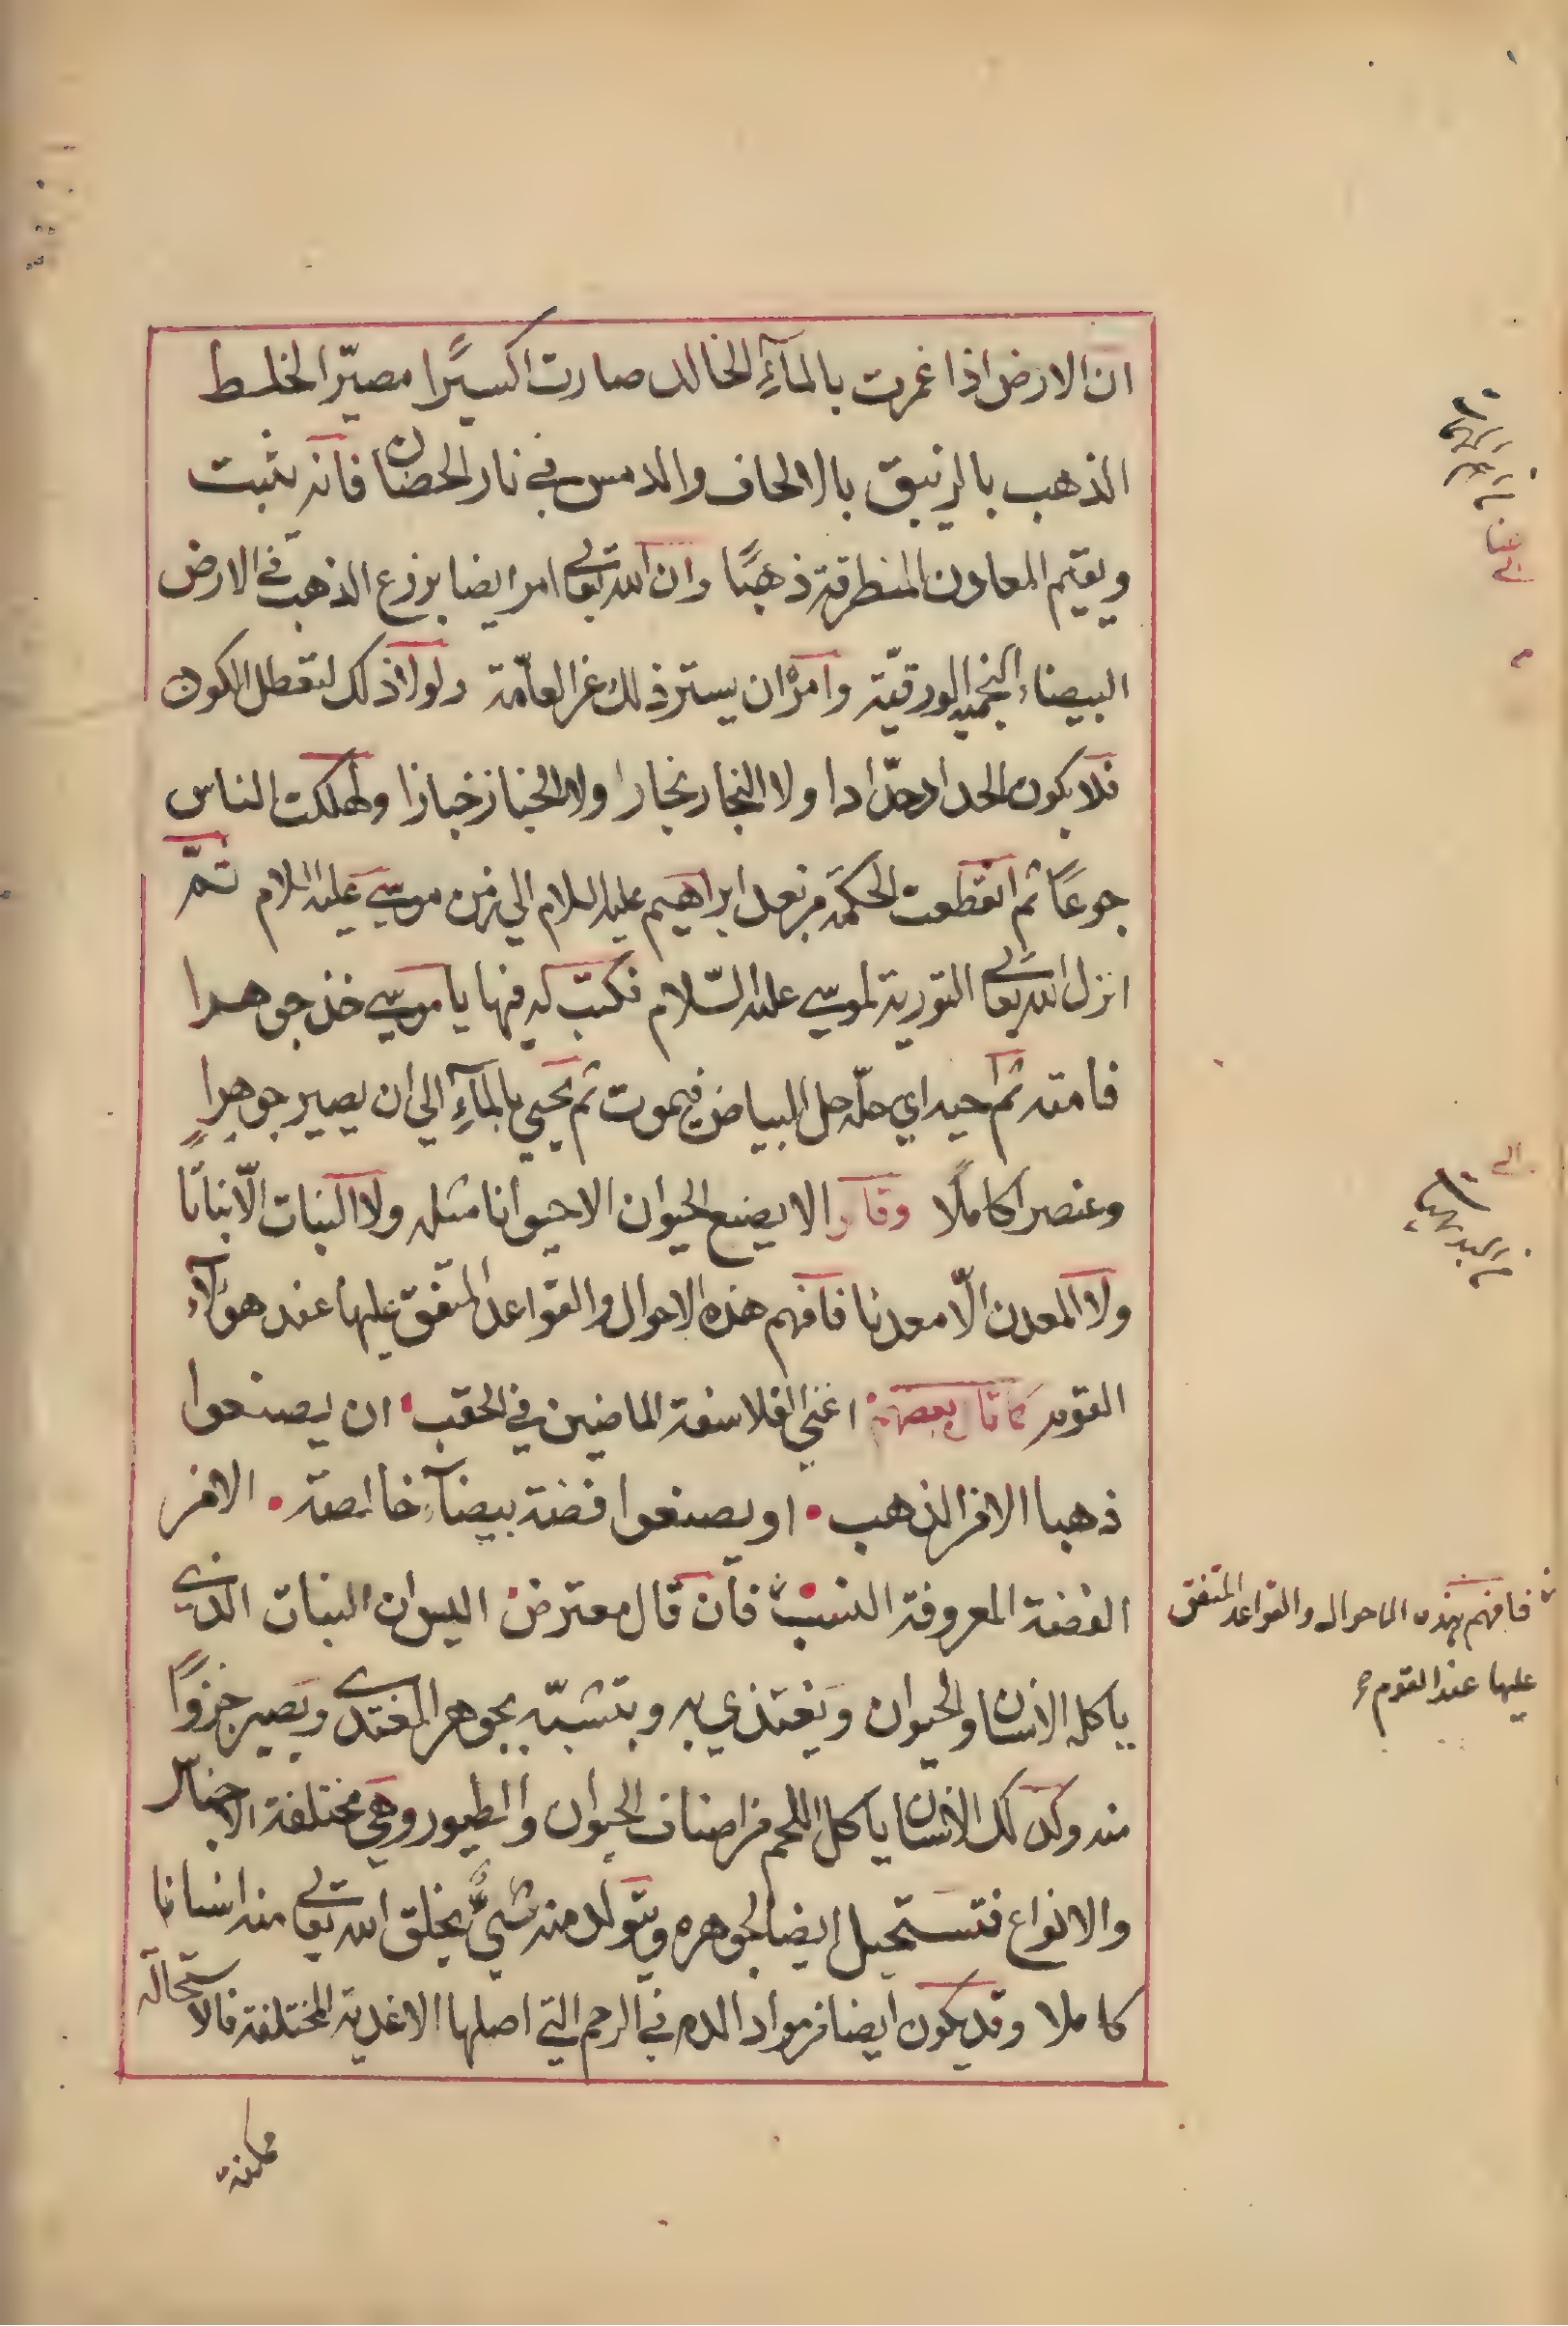 ان الارض اذا غمرت بالمآءِ الخالد صارت اكسيرًا مصيّرا لخلط
الذهب بالزئبق بالالحاف والدمس في نار الحضان فانه يثبت
ويقيم المعادن المنطرقة ذهبًا وان الله تعالى امر ايضا بزرع الذهب في الارض
البيضاء النجميه الورقيّة وامر ان يستر ذلك عن العامّة ولولا ذلك لتعطل الكون
فلا يكون الحداد حدّادا ولا النجار نجارا ولا الخباز خبازا ولهلكت الناس
جوعًا ثم انقطعت الحكمة من بعد ابراهيم عليه السلام الي زمن موسي عليه السلام ثمّ
انزل الله تعالى التورية لموسي عليه السّلام فكتب له فيها يا موسي خذ جوهرا
فامته ثم احيه اي حلّه حل البياض فيموت ثم يحيي بالمآءِ الي ان يصير جوهرا
وعنصرا كاملًا وقالوا لا يصنع الحيوان الا حيوانا مثله ولا النبات الّا نباتا
ولا المعدن الّا معدنا فافهم هذه الاحوال والقواعد المتفق عليها عند هؤلآء
القوم كما قال بعضهم اعني الفلاسفة الماضين في الحقب ان يصنعوا
ذهبا الا من الذهب او يصنعوا فضة بيضآء خالصة الا من
الفضة المعروفة النسب فان قال معترض اليس ان النبات الذي
ياكله الانسان والحيوان ويغتذي به ويتشبّه بجوهر المغتدى ويصير جزوًا
منه وكذلك الانسان ياكل اللحم من اصناف الحيوان والطيور وهي مختلفة الاجناس
والانواع فتستحيل ايضا لجوهره ويتولد منه شيءٌ يخلق الله تعالى منه انسانا
كاملا وقد يكون ايضا من مواد الدم في الرحم التي اصلها الاغدية المختلفة فالاستحالة
ممكنة
فافهم بهذه الاحوال والقواعد المتفق
عليها عند القوم